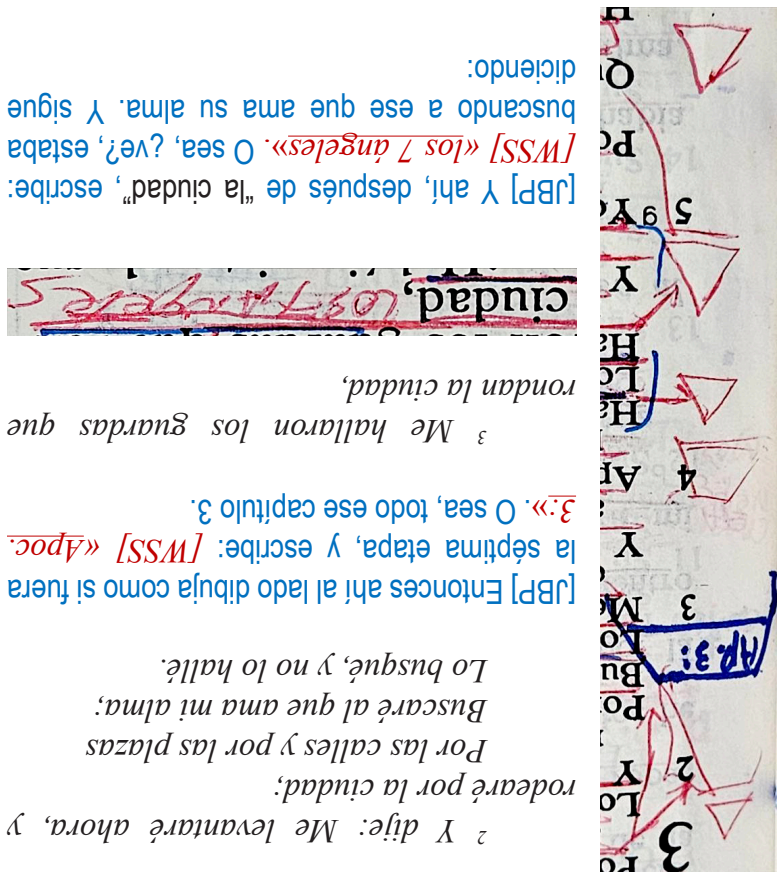 ² Y dije: Me levantaré ahora, y
rodearé por la ciudad;
Por las calles y por las plazas
Buscaré al que ama mi alma;
Lo busqué, y no lo hallé.
[JBP] Entonces ahí al lado dibuja como si fuera
la séptima etapa, y escribe: [WSS] «Apoc.
3:». O sea, todo ese capítulo 3.
³ Me hallaron los guardas que
rondan la ciudad,
ciudad, Los 7 Angeles
[JBP] Y ahí, después de "la ciudad", escribe:
[WSS] «los 7 ángeles». O sea, ¿ve?, estaba
buscando a ese que ama su alma. Y sigue
diciendo:
3
Po
Lo
2 Y
Po
Bu
AP. 3:
Lo
3 Me
Y
4 Ap
Ha
Lo
Ha
Y
5 9 Yo
Po
Qu
H